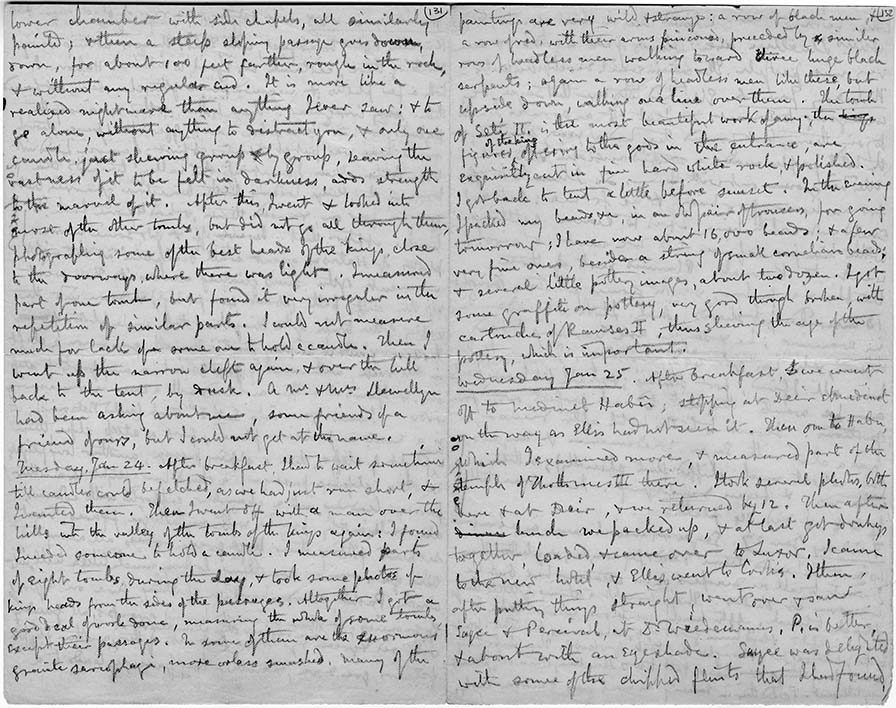 131
lower chamber with side chapels, all similarly
painted; & then a steep sloping passage goes down,
down, for about 100 feet farther, rough in the rock,
& without any regular end. It is more like a
realised nightmare than anything I ever saw: & to
go alone, without anything to distract you, & only one
candle, just shewing group by group, leaving the
vastness of it to be felt in darkness, adds strength
to the marvel of it. After this, I went & looked into
most of the other tombs, but did not go all through them
photographing some of the best heads of the kings close
to the doorways where there was light. I measured
part of one tomb, but found it very irregular in the
repetition of similar parts. I could not measure
much for lack of some one to hold a candle. Then I
went up the narrow cleft again, & over the hill
back to the tent, by dusk. A Mr. & Mrs Llewellyn
had been asking about me, some friends of a
friend of yours, but I could not get at the name.
Tuesday Jan 24. After breakfast I had to wait sometime
till candles could be fetched, as we had just run short, &
I wanted them. Then I went off with a man over the
hills into the valley of the tombs of the kings again: I found
I needed someone to hold a candle. I measured parts
of eight tombs, during the day, & took some photos of
kings heads from the sides of the passages. Altogether I got a
good deal of work done, measuring the whole of some tombs,
except their passages. In some of them are the enormous
granite sarcophagi, more or less smashed. Many of the
paintings are very wild & strange: a row of black men, &
a row of red, with their arms pinioned, preceded by similar
rows of headless men walking toward three huge black
serpents; again a row of headless men like these, but
upside down, walking on a line over them. The tomb
of Seti II. is the most beautiful work of any: the
figures of the king offering to the gods in the entrance, are
exquisitely cut in fine hard white rock, & polished.
I got back to tent a little before sunset. In the evening
I packed my beads &c, in an old pair of trousers, for going
tomorrow; I have now about 16,000 beads; & a few
very fine ones, besides a string of small cornelian beads,
& several little pottery images, about two dozen. I got
some graffiti on pottery, very good though broken, with
cartouche of Ramses II, thus shewing the age of the
pottery, which is important.
Wednesday Jan 25. After breakfast, we went
off to Medinet Habu, stopping at Deir el
on the way as Ellis had not seen it. Then on to Habu,
which I examined more, & measured part of the
temple of Thothmes III there. I took several photos, both
here & at Deir, & we returned by 12. Then after
lunch we packed up, & at last got donkeys
together, loaded & came over to Luxor. I came
to the new hotel, & Ellis went to Cooks. I then,
after putting things straight, went over & saw
Sayce & Percival, at Dr Wiedemanns, P. is better,
& about with an eyeshade. Sayce was delighted
with some of the chipped flints that I had found,